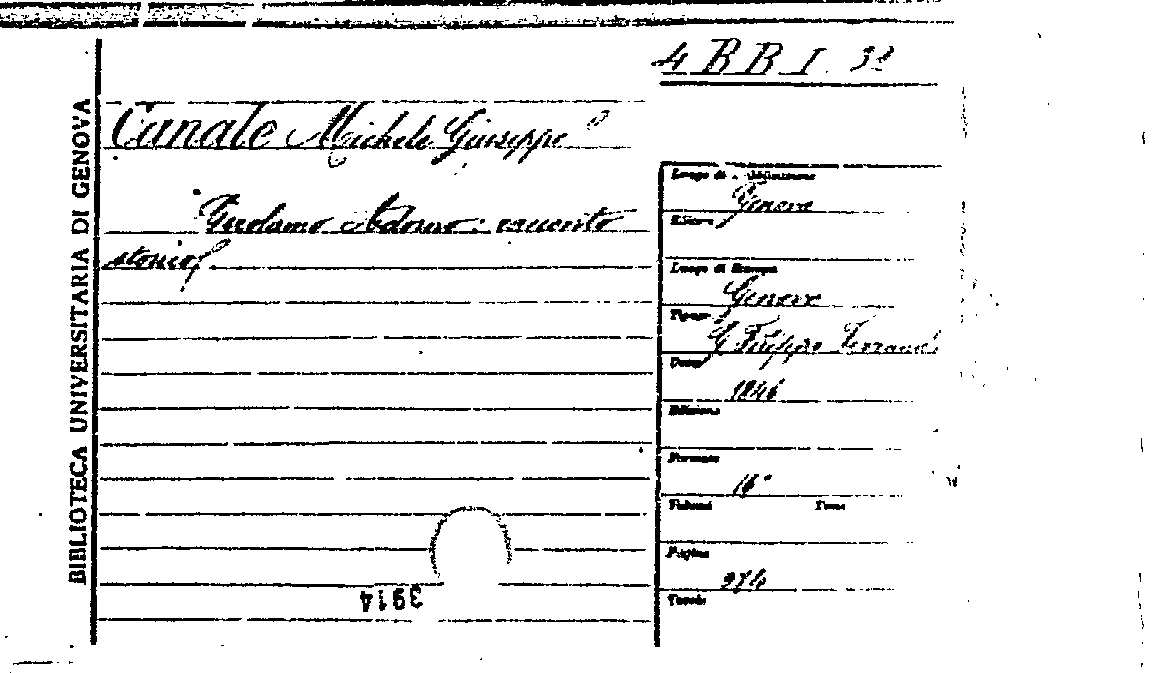 4 B B I 32
BIBLIOTECA UNIVERSITARIA DI GENOVA
Canale Michele Giuseppe
Girolamo Adorno: racconto
storico
Luogo di Pubblicazione
Genova
Editore
Luogo di Stampa
Genova
Tipogr.
G. Filippo Ferrando
Data
1846
Edizione
Formato
16°
Volumi Tomo
Pagine
274
Tavole
3914